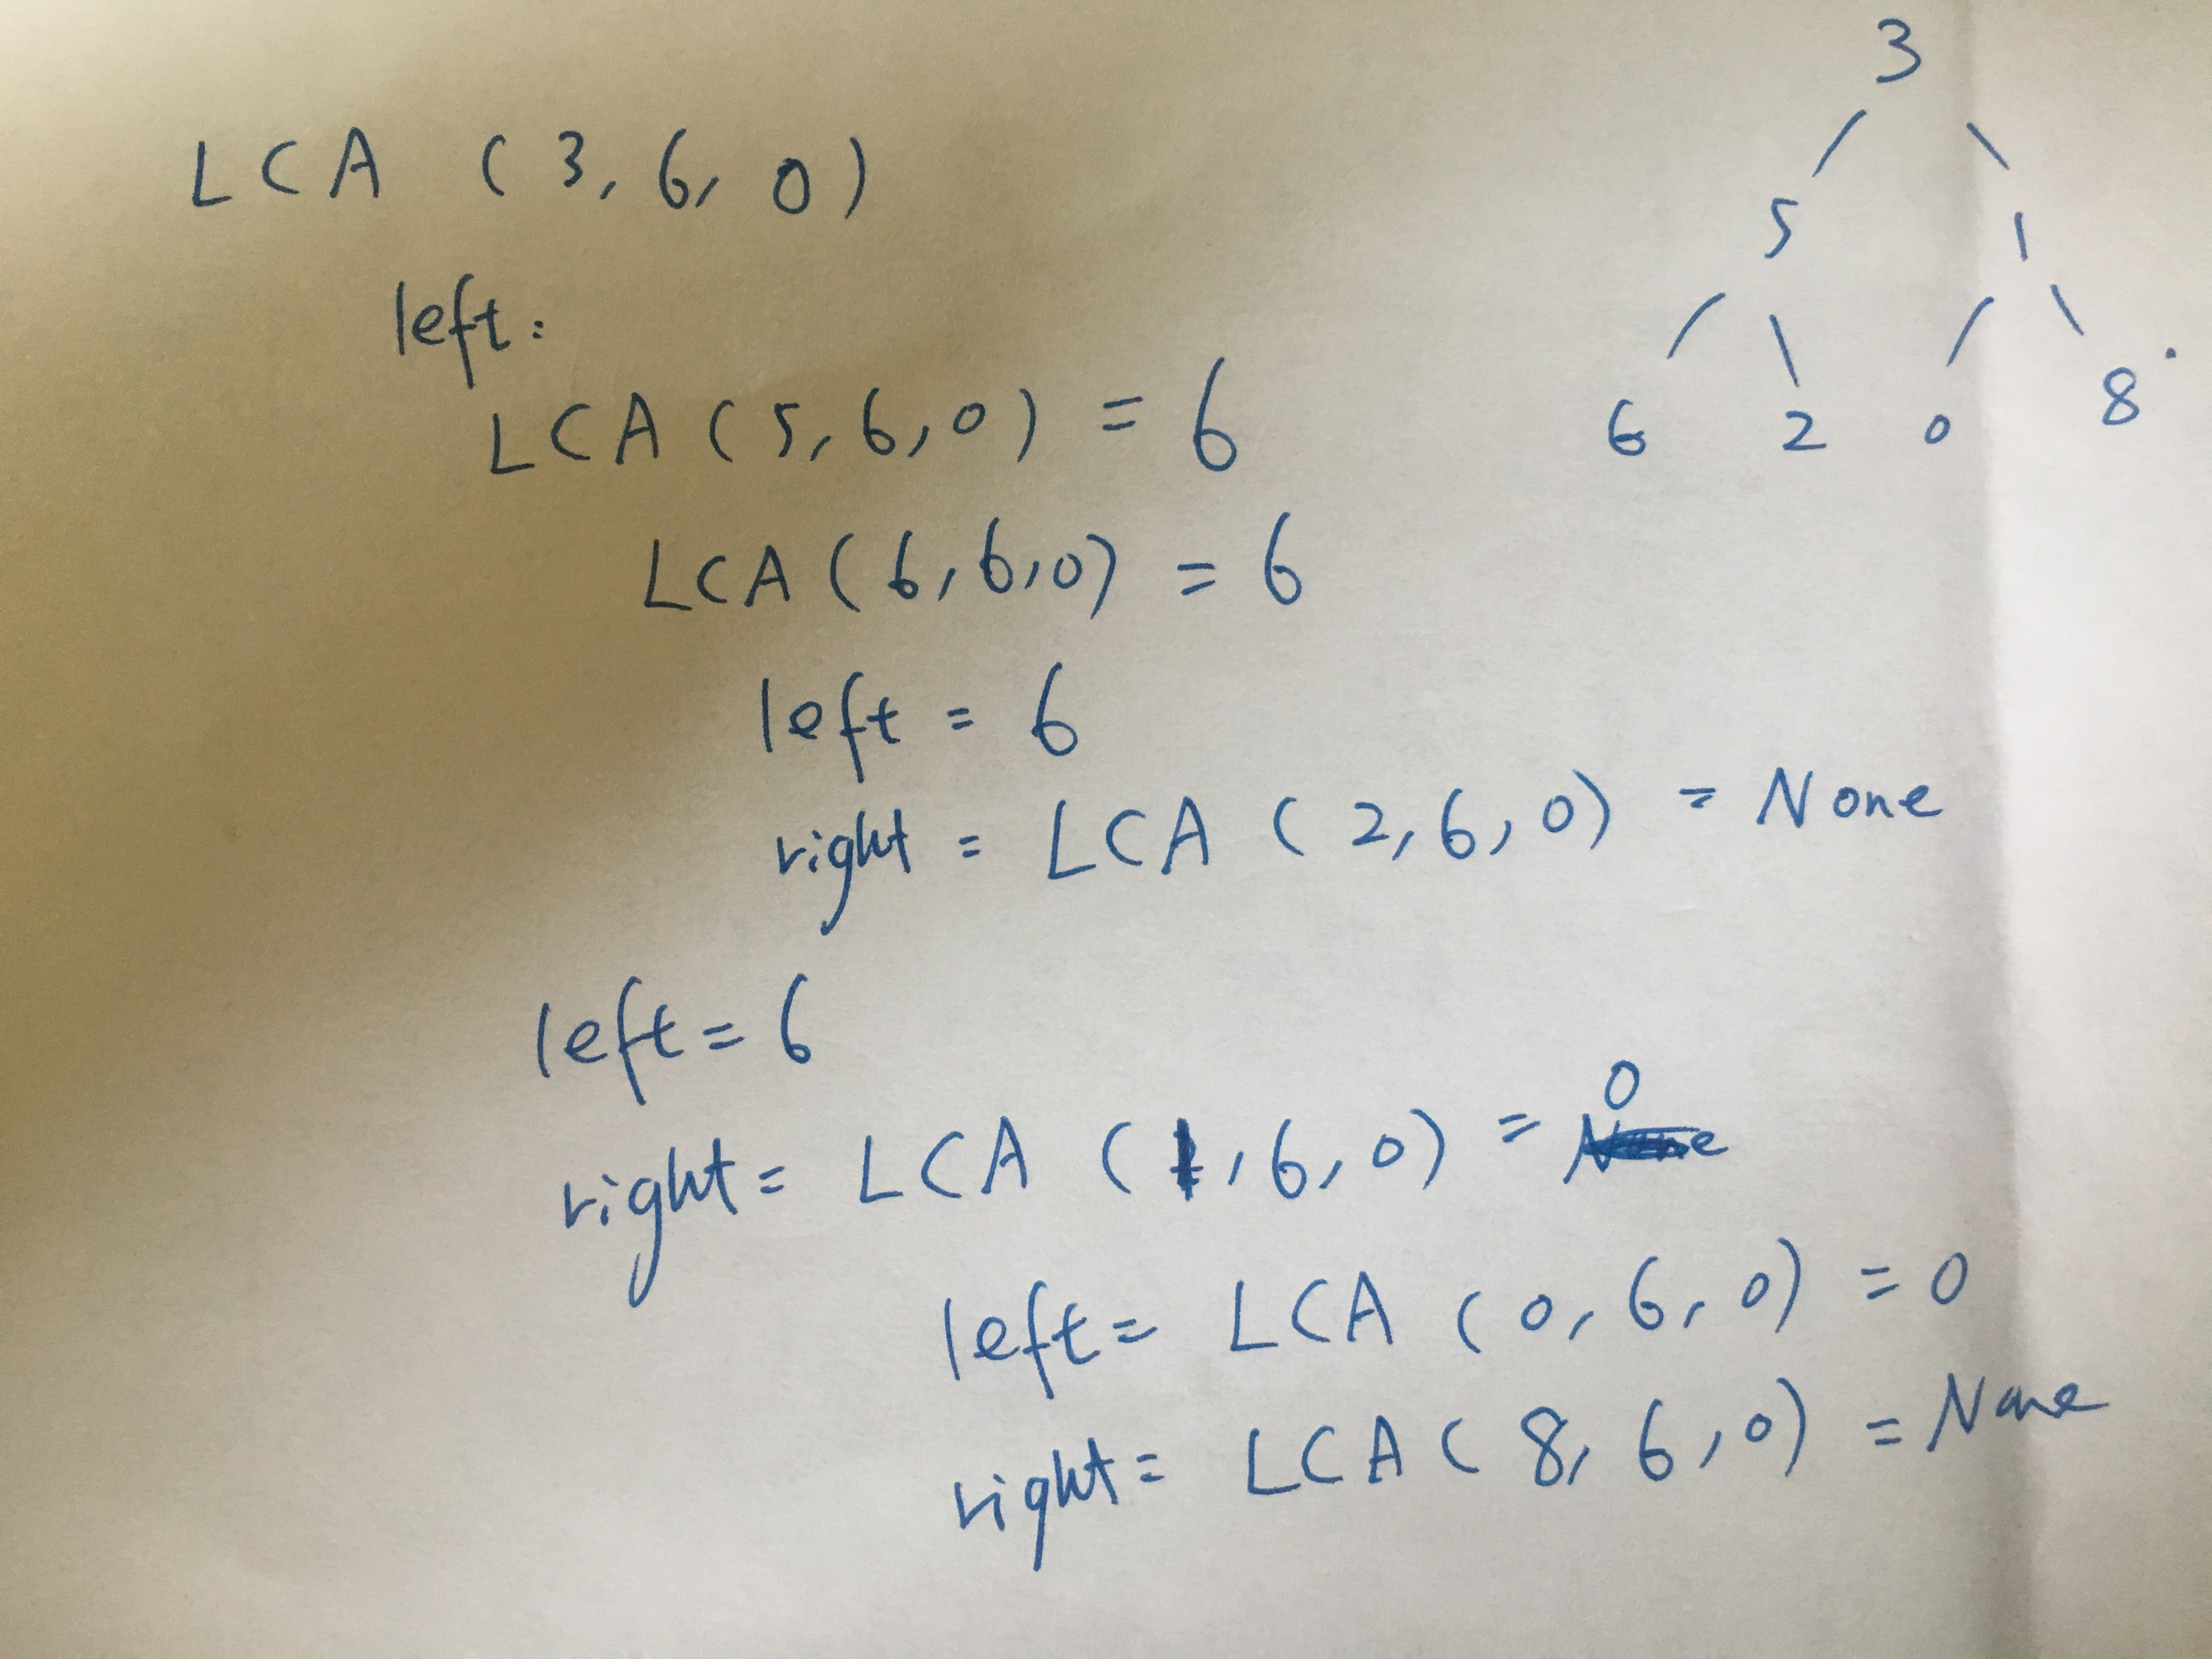 LCA (3,6,0)
left:
LCA (5,6,0) = 6
LCA (6,6,0) = 6
left = 6
right = LCA (2,6,0) = None
left = 6
right = LCA (1,6,0) = 0
left = LCA (0,6,0) = 0
right = LCA (8,6,0) = None
3
5 1
6 2 0 8